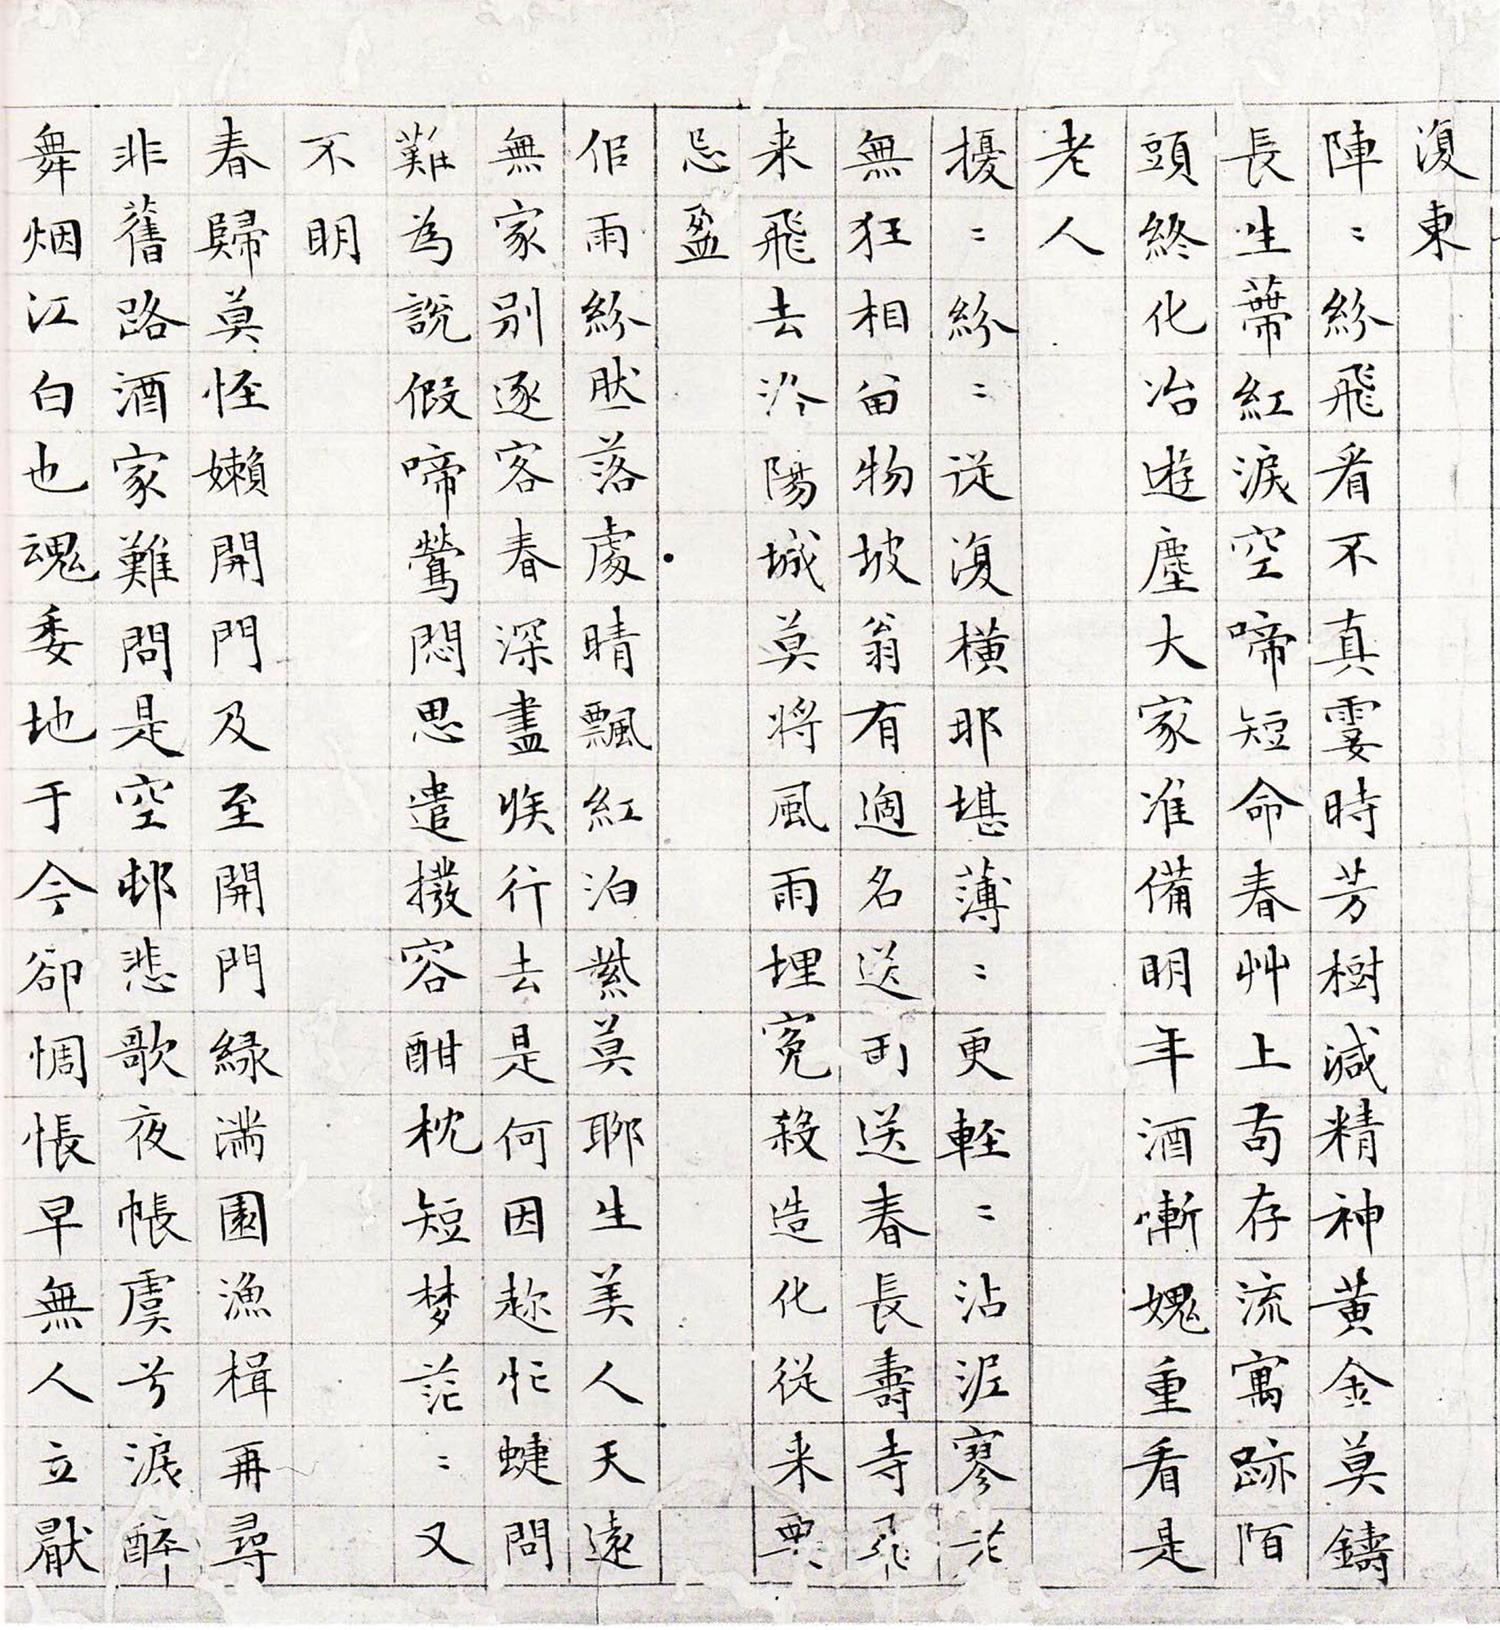 復東
陣〻紛飛看不真霎時芳樹減精神黃金莫鑄
長生蔕紅淚空啼短命春艸上苟存流寓跡陌
頭終化冶遊塵大家准備明年酒慚媿重看是
老人
擾〻紛〻從復橫那堪薄〻更輕〻沾泥寥
無狂相留物坡翁有過名送送春長壽寺飛
来飛去洛陽城莫將風雨埋冤殺造化從来
忌盈
佀雨紛然落處晴飄紅泊紫莫聊生美人天遠
無家別逐客春深盡族行去是何因趂忙蜨問
難為說假啼鶯悶思遣撥容酣枕短梦茫〻又
不明
春歸莫怪嬾開門及至開門緑滿園漁楫再尋
非舊路酒家難問是空邨悲歌夜帳虞兮淚醉
舞烟江白也魂委地于今卻惆悵早無人立厭